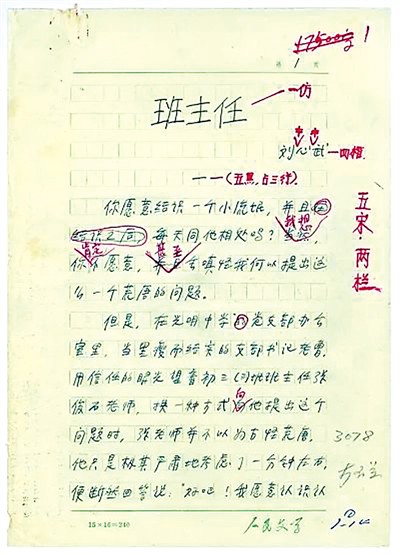 17500字 1
第 1 页
班主任 一仿
刘心武 一四楷
一(五黑,占三行)
五宋·两栏
你愿意结识一个小流氓,并且在
我想
结识之后,每天同他相处吗?当然,
肯定 甚至
你不愿意,并且会嗔怪我何以提出这
么一个荒唐的问题。
但是,在光明中学的党支部办公
室里,当黑瘦而结实的支部书记老曹,
用信任的眼光望着初三(3)班班主任张
俊石老师,换一种方式向他提出这个
问题时,张老师并不以为古怪荒唐。
他只是极其严肃地考虑了一分钟左右,
便断然回答说:“好吧!我愿意认识认
3078
15×16=240
人民文学